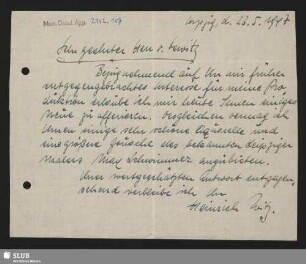 Mscr.Dresd.App. 2712, 107
Leipzig, d. 23.5.1947
Sehr geehrter Herr v. Lewitz
Bezugnehmend auf Ihr mir früher
entgegengebrachtes Interesse für meine Pro-
duktion erlaube ich mir heute Ihnen einiges
Neue zu offerieren. Desgleichen vermag ich
Ihnen einige sehr schöne Aquarelle und
eine größere Gouache des bekannten Leipziger
Malers Max Schwimmer anzubieten.
Ihrer wertgeschätzten Antwort entgegen-
sehend verbleibe ich Ihr
Heinrich
SLUB